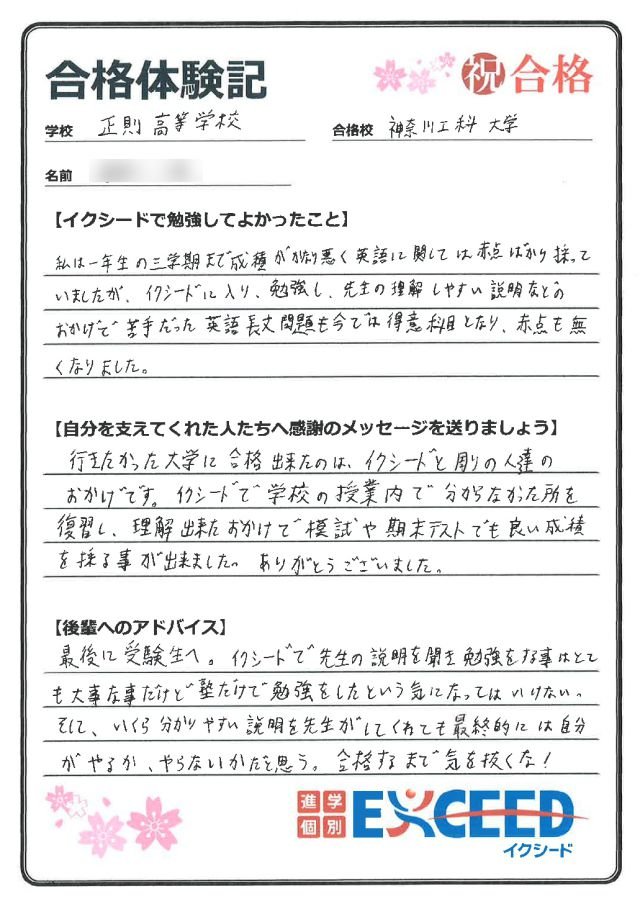 合格体験記
祝 合格
学校 正則高等学校
合格校 神奈川工科大学
名前
【イクシードで勉強してよかったこと】
私は一年生の三学期まで成績がかなり悪く英語に関しては赤点ばかり採って
いましたが、イクシードに入り、勉強し、先生の理解しやすい説明などの
おかげで苦手だった英語長文問題も今では得意科目となり、赤点も無
くなりました。
【自分を支えてくれた人たちへ感謝のメッセージを送りましょう】
行きたかった大学に合格出来たのは、イクシードと周りの人達の
おかげです。イクシードで学校の授業内で分からなかった所を
復習し、理解出来たおかげで模試や期末テストでも良い成績
を採る事が出来ました。ありがとうございました。
【後輩へのアドバイス】
最後に受験生へ。イクシードで先生の説明を聞き勉強をする事はとて
も大事な事だけど塾だけで勉強をしたという気になってはいけない。
そして、いくら分かりやすい説明を先生がしてくれても最終的には自分
がやるか、やらないかだと思う。合格するまで気を抜くな!
進学
個別
EXCEED
イクシード